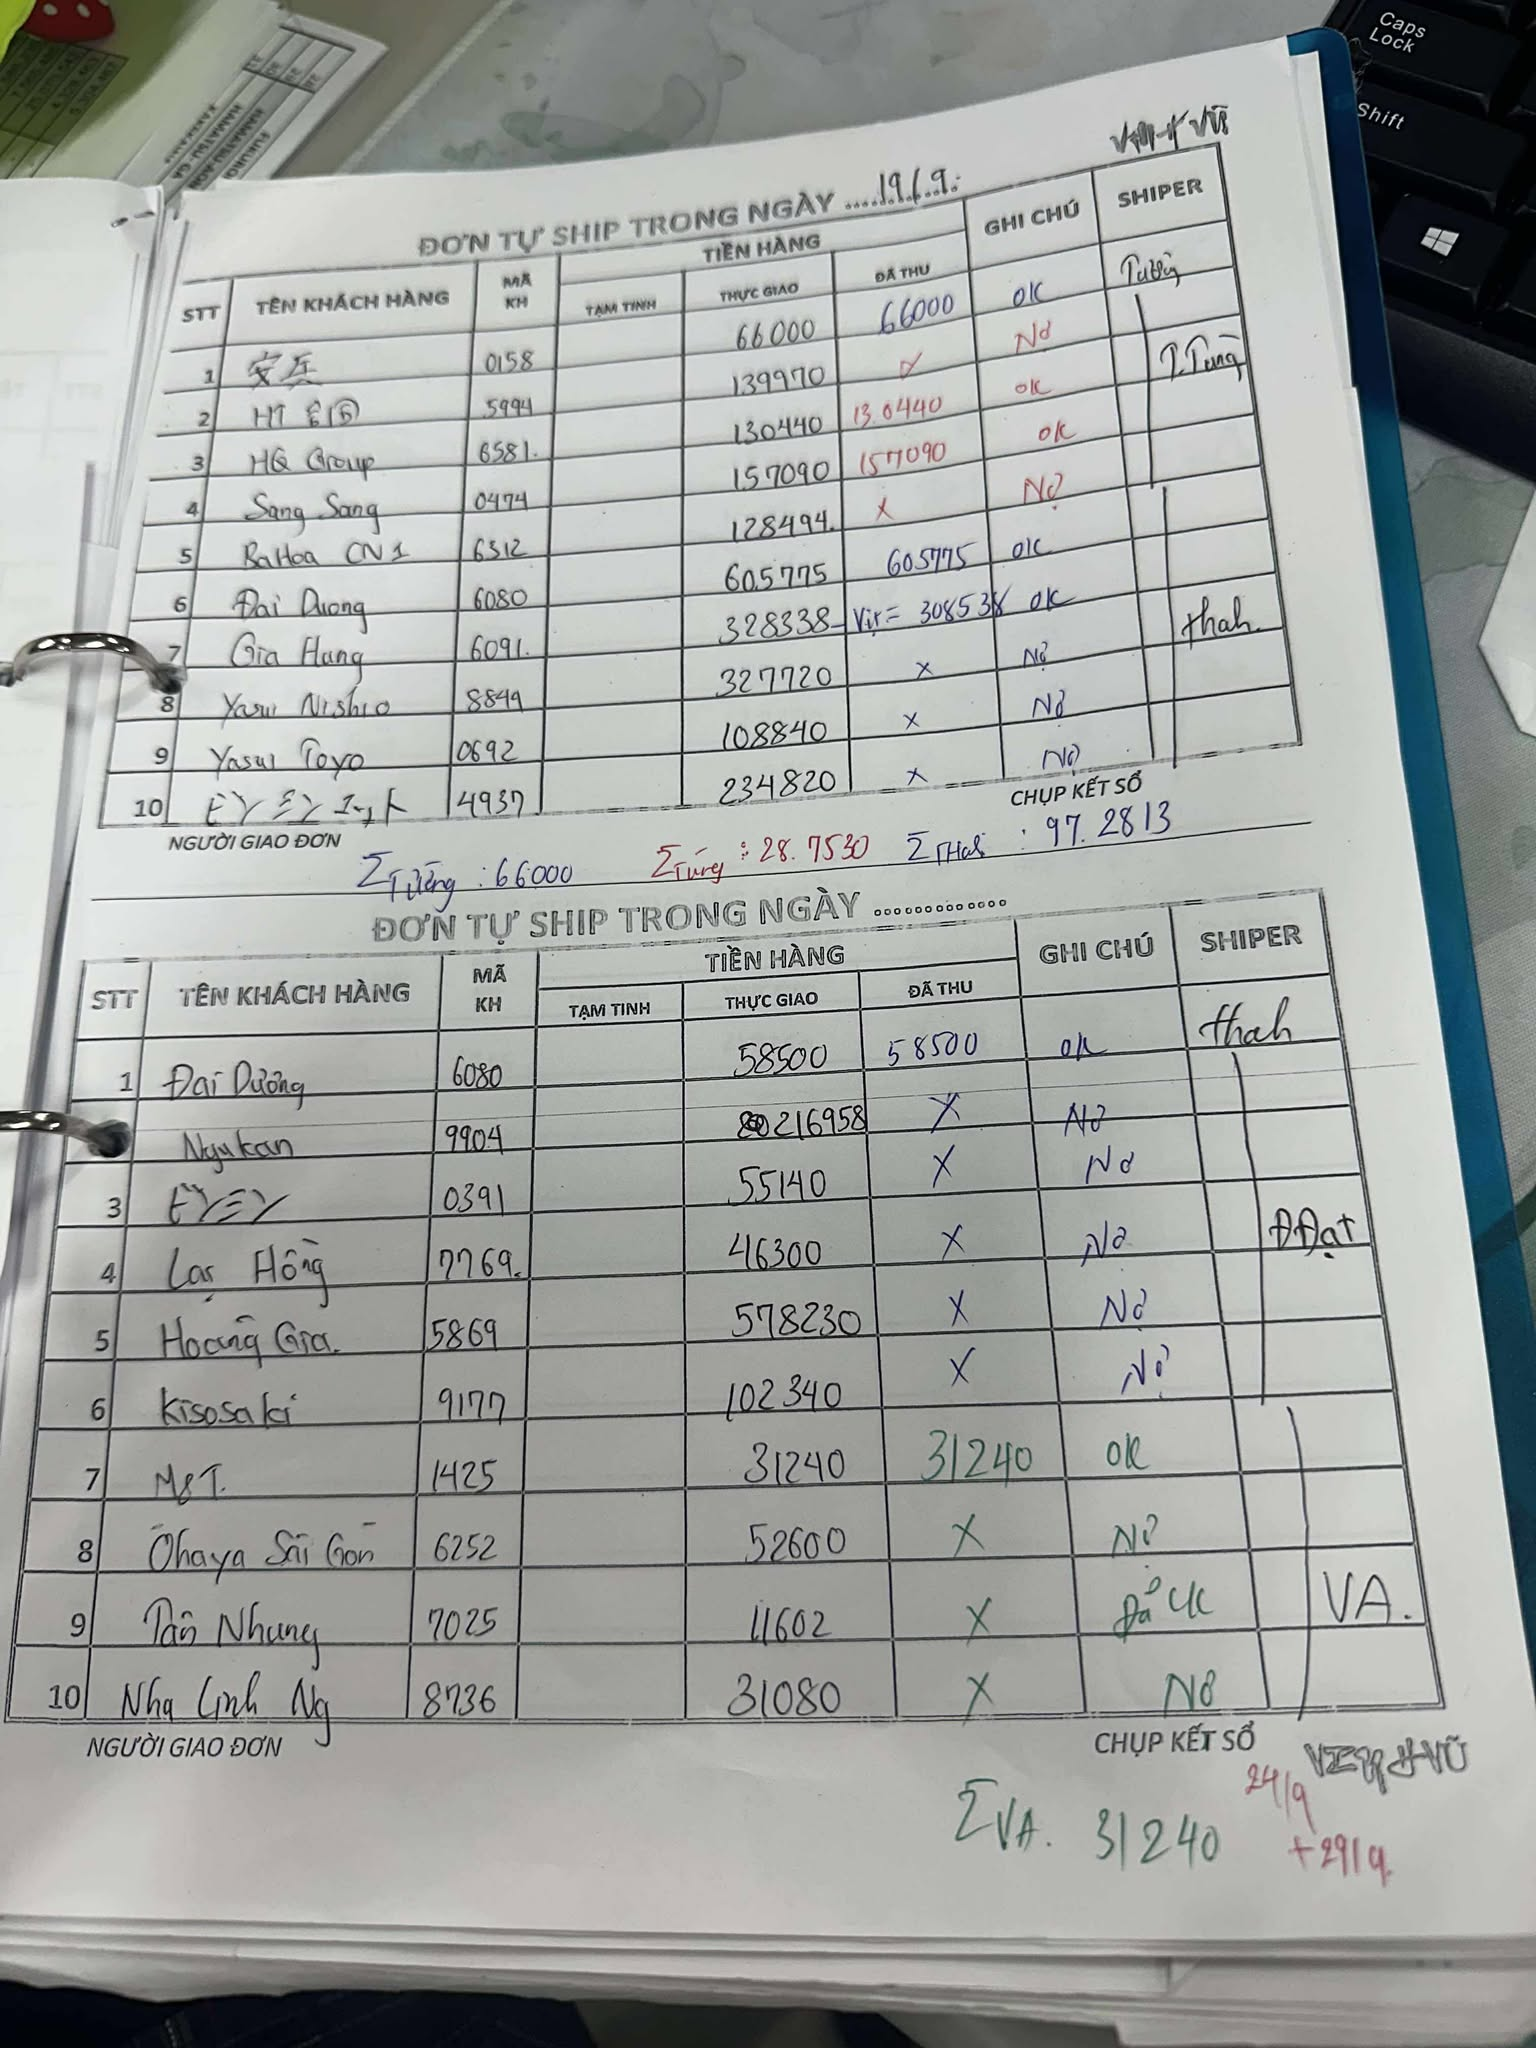 Caps
Lock
Shift
ĐƠN TỰ SHIP TRONG NGÀY .....19/9.
STT TÊN KHÁCH HÀNG MÃ KH TIỀN HÀNG GHI CHÚ SHIPER
TẠM TINH THỰC GIAO ĐÃ THU
1 0158 66000 66000 OK Tường
2 5994 139970 x Nợ
3 HQ Group 6581. 130440 13.0440 OK T.Tùng
4 Sang Sang 0474 157090 157090 OK
5 Ba Hoa CN1 6312 128494. x Nợ
6 Đai Duong 6080 605775 605775 OK
7 Gia Hung 6091. 328338 308538 OK thah.
8 Yasui Nishio 8849 327720 x Nợ
9 Yasui Toyo 0692 108840 x Nợ
10 4937 234820 x Nợ
NGƯỜI GIAO ĐƠN CHỤP KẾT SỔ
Σ Tường : 66000 Σ Tùng : 28.7530 Σ : 97.2813
ĐƠN TỰ SHIP TRONG NGÀY .............
STT TÊN KHÁCH HÀNG MÃ KH TIỀN HÀNG GHI CHÚ SHIPER
TẠM TINH THỰC GIAO ĐÃ THU
1 Đai Dương 6080 58500 58500 OK thah
Ngukan 9904 216958 X Nợ
3 0391 55140 X Nợ
4 Lạc Hồng 7769. 46300 X Nợ ĐĐạt
5 Hoàng Gia. 5869 578230 X Nợ
6 Kisosaki 9177 102340 X Nợ
7 M&T. 1425 31240 31240 OK
8 Ohaya Sài Gòn 6252 52600 X Nợ
9 Tân Nhung 7025 11602 X Đã CK VA.
10 Nhạ Linh Ng 8736 31080 X Nợ
NGƯỜI GIAO ĐƠN CHỤP KẾT SỔ
Σ VA. 31240
24/9
+29/9.